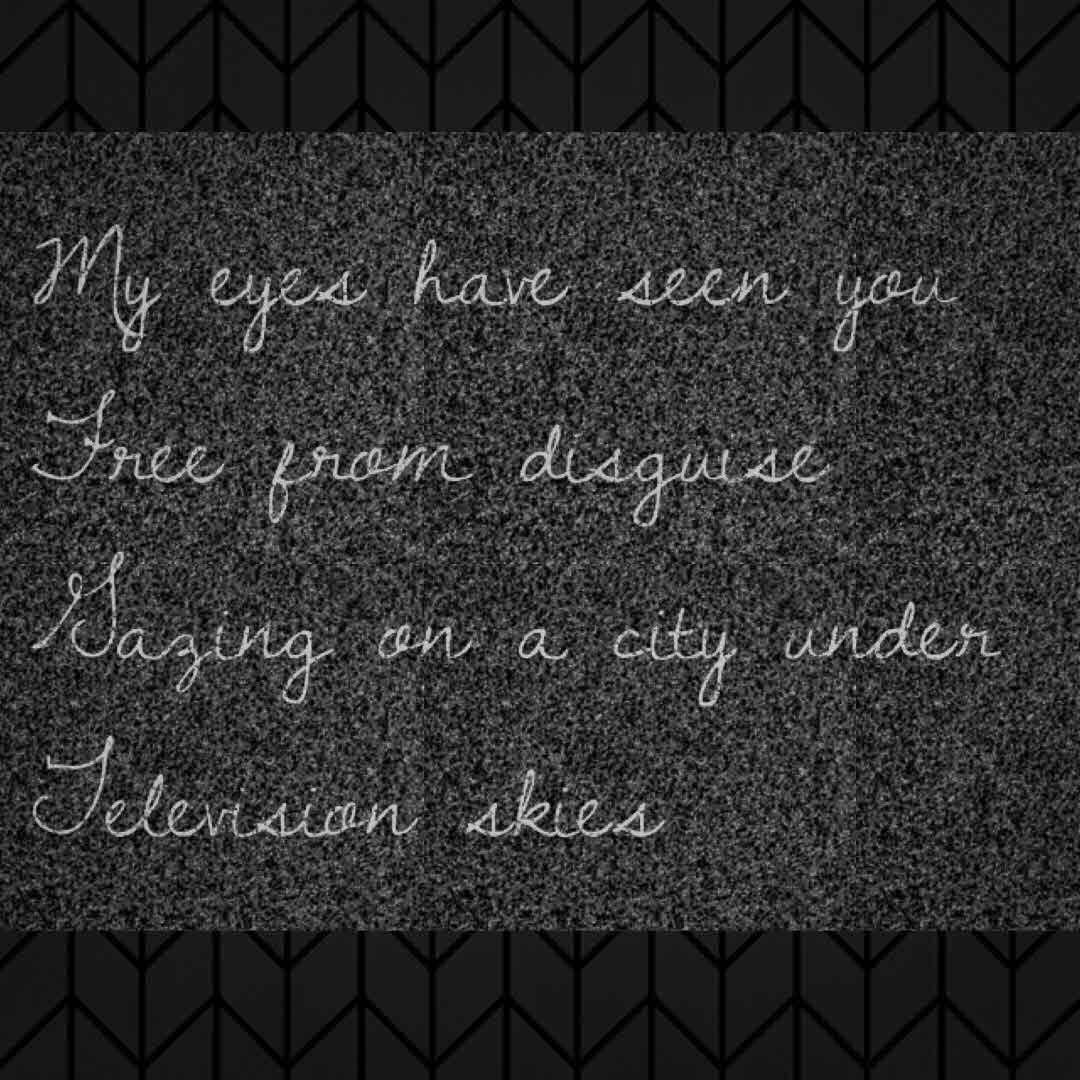 My eyes have seen you
Free from disguise
Gazing on a city under
Television skies